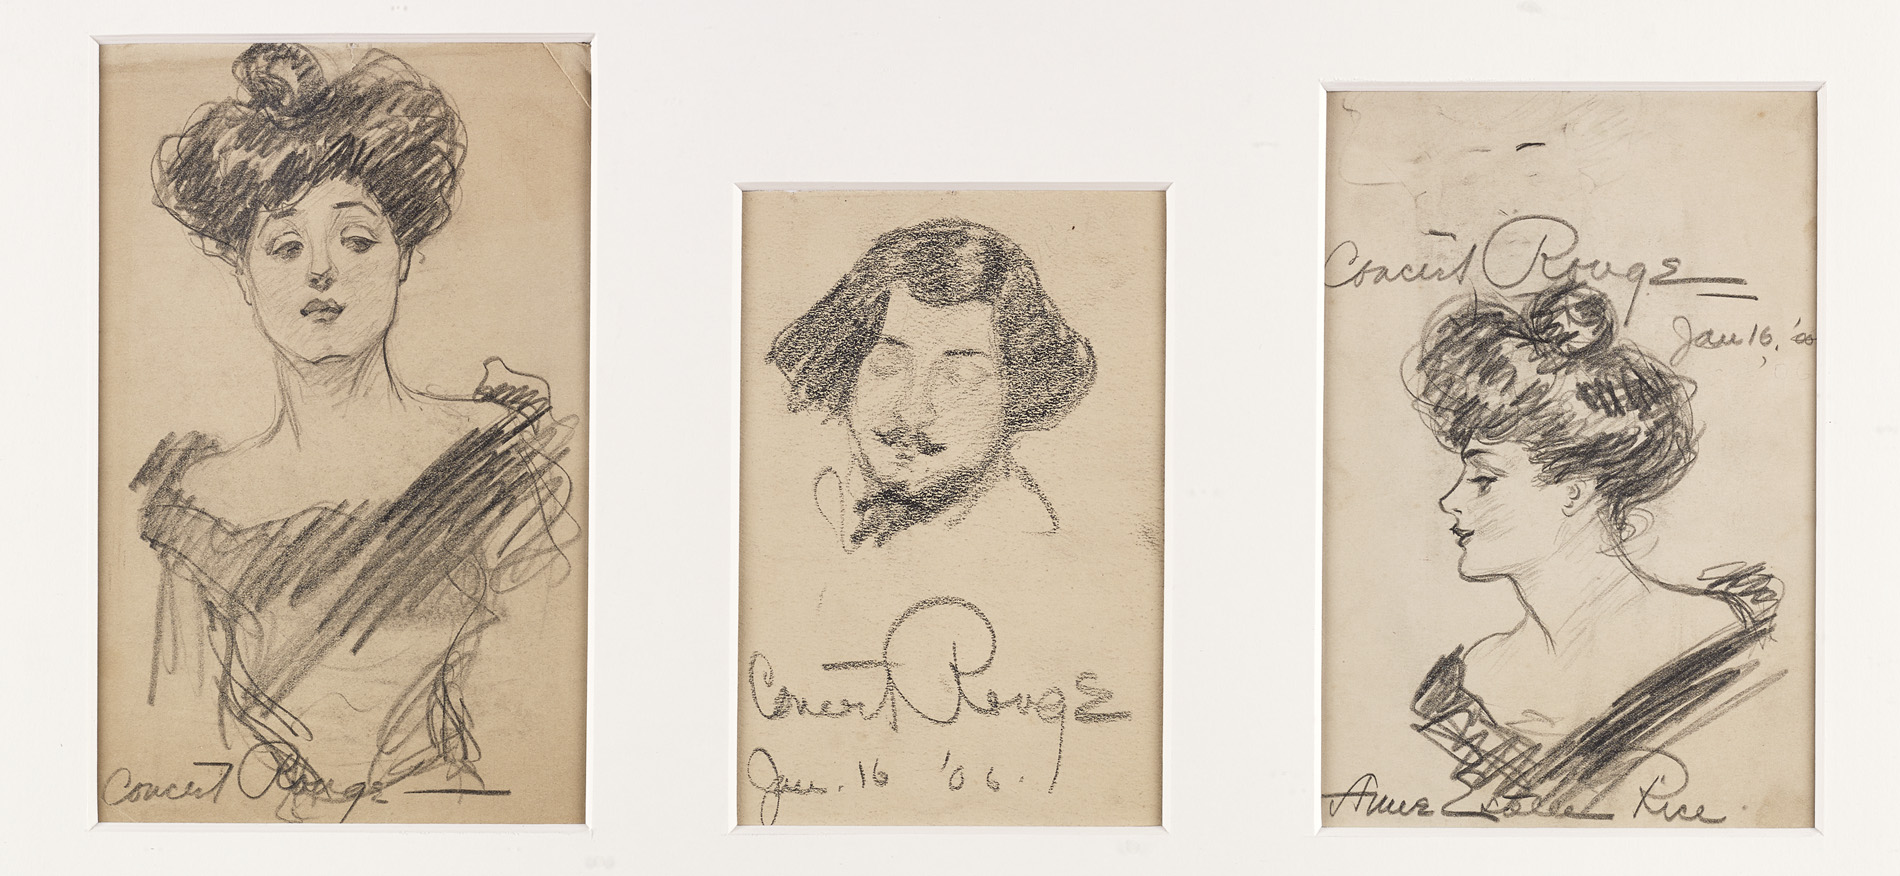 Concert Rouge
Concert Rouge
Jan. 16 '06.
Concert Rouge
Jan 16, '06
Anne Estelle Rice